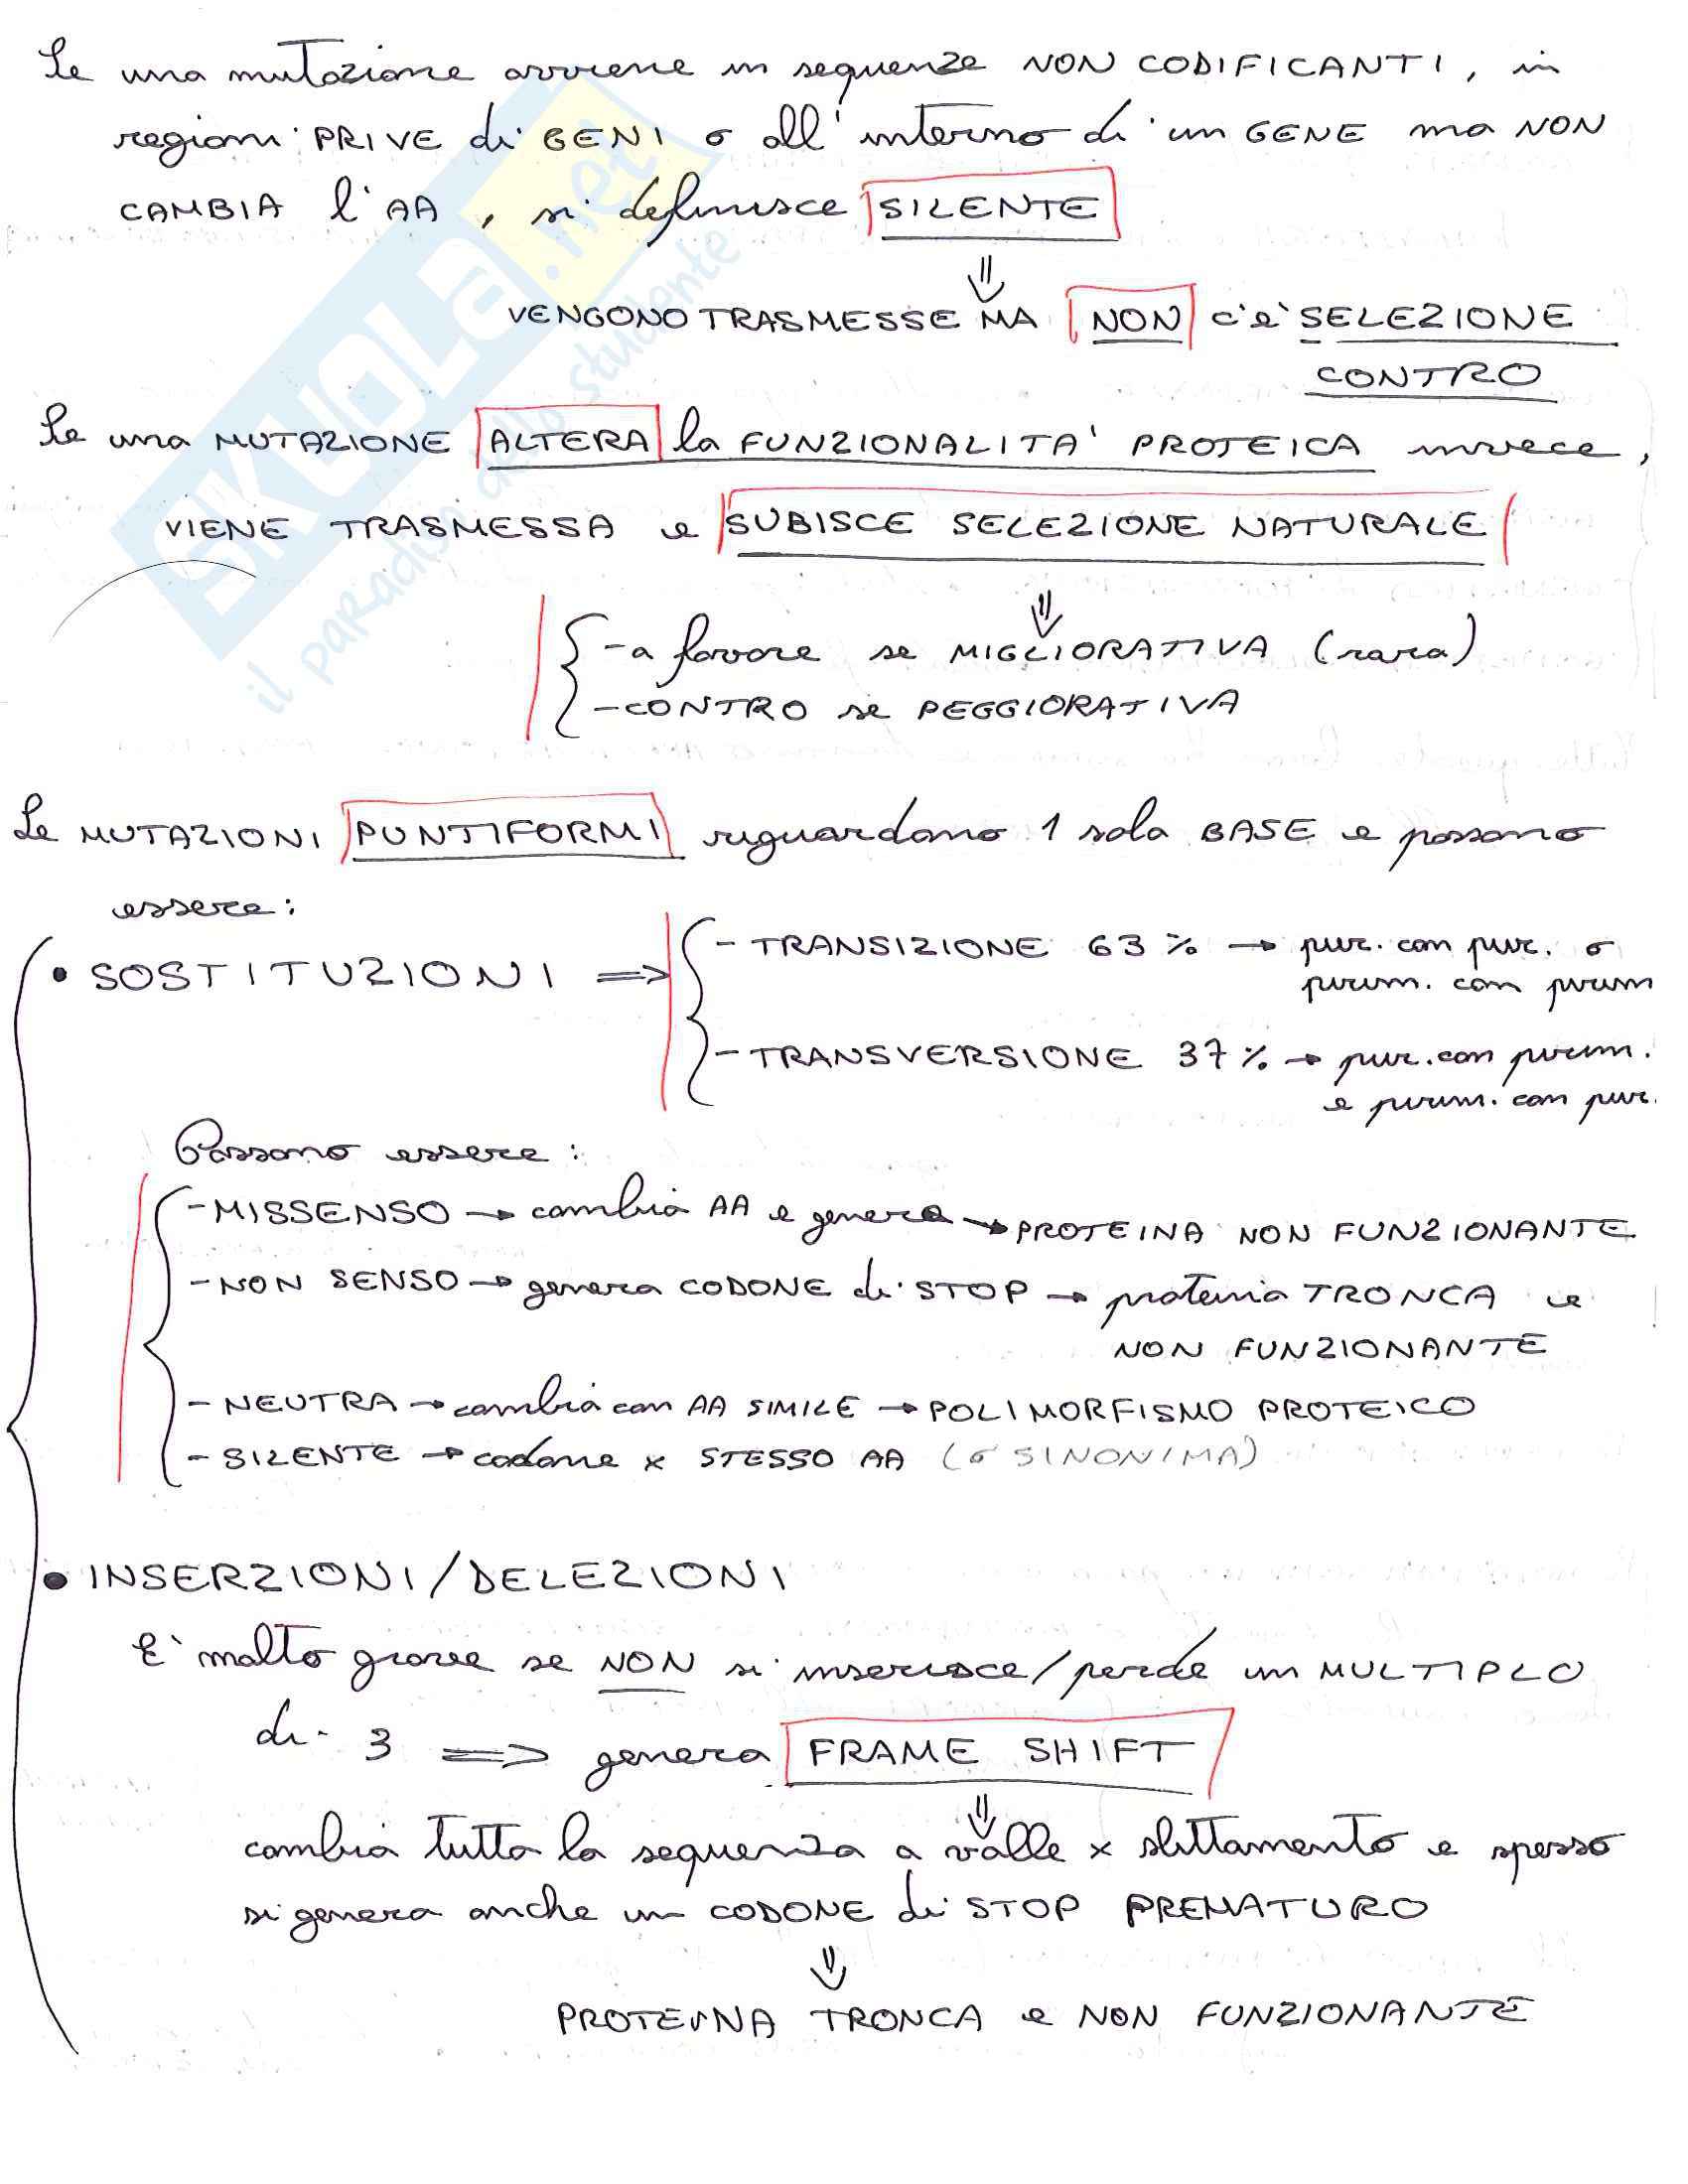 Se una mutazione avviene in sequenze NON CODIFICANTI, in
regioni PRIVE di GENI o all'interno di un GENE ma NON
CAMBIA l'AA, si definisce SILENTE
⇓
VENGONO TRASMESSE MA NON c'è SELEZIONE
CONTRO
Se una MUTAZIONE ALTERA la FUNZIONALITA' PROTEICA invece,
VIENE TRASMESSA e SUBISCE SELEZIONE NATURALE
⇓
- a favore se MIGLIORATIVA (rara)
- CONTRO se PEGGIORATIVA
Le MUTAZIONI PUNTIFORMI riguardano 1 sola BASE e possono
essere:
• SOSTITUZIONI ⇒
- TRANSIZIONE 63 % → pur. con pur. o
pirim. con pirim
- TRANSVERSIONE 37 % → pur. con pirim.
e pirim. con pur.
Possono essere:
- MISSENSO → cambia AA e genera → PROTEINA NON FUNZIONANTE
- NON SENSO → genera CODONE di STOP → proteina TRONCA e
NON FUNZIONANTE
- NEUTRA → cambia con AA SIMILE → POLIMORFISMO PROTEICO
- SILENTE → codone x STESSO AA (o SINONIMA)
• INSERZIONI/DELEZIONI
E' molto grave se NON si inserisce/perde un MULTIPLO
di 3 ⇒ genera FRAME SHIFT
⇓
cambia tutta la sequenza a valle x slittamento e spesso
si genera anche un CODONE di STOP PREMATURO
⇓
PROTEINA TRONCA e NON FUNZIONANTE
SKUOLA.net
il paradiso dello studente